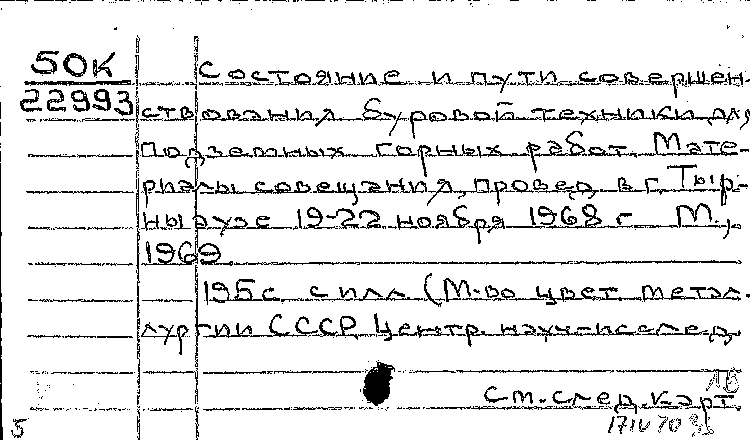 50К
22993
Состояние и пути совершен-
ствования буровой техники для
подземных горных работ. Мате-
риалы совещания, провед. в г. Тыр-
ныаузе 19-22 ноября 1968 г. М.,
1969.
195 с. с илл. (М-во цвет. метал-
лургии СССР. Центр. науч-исслед.
См. след. карт.
5